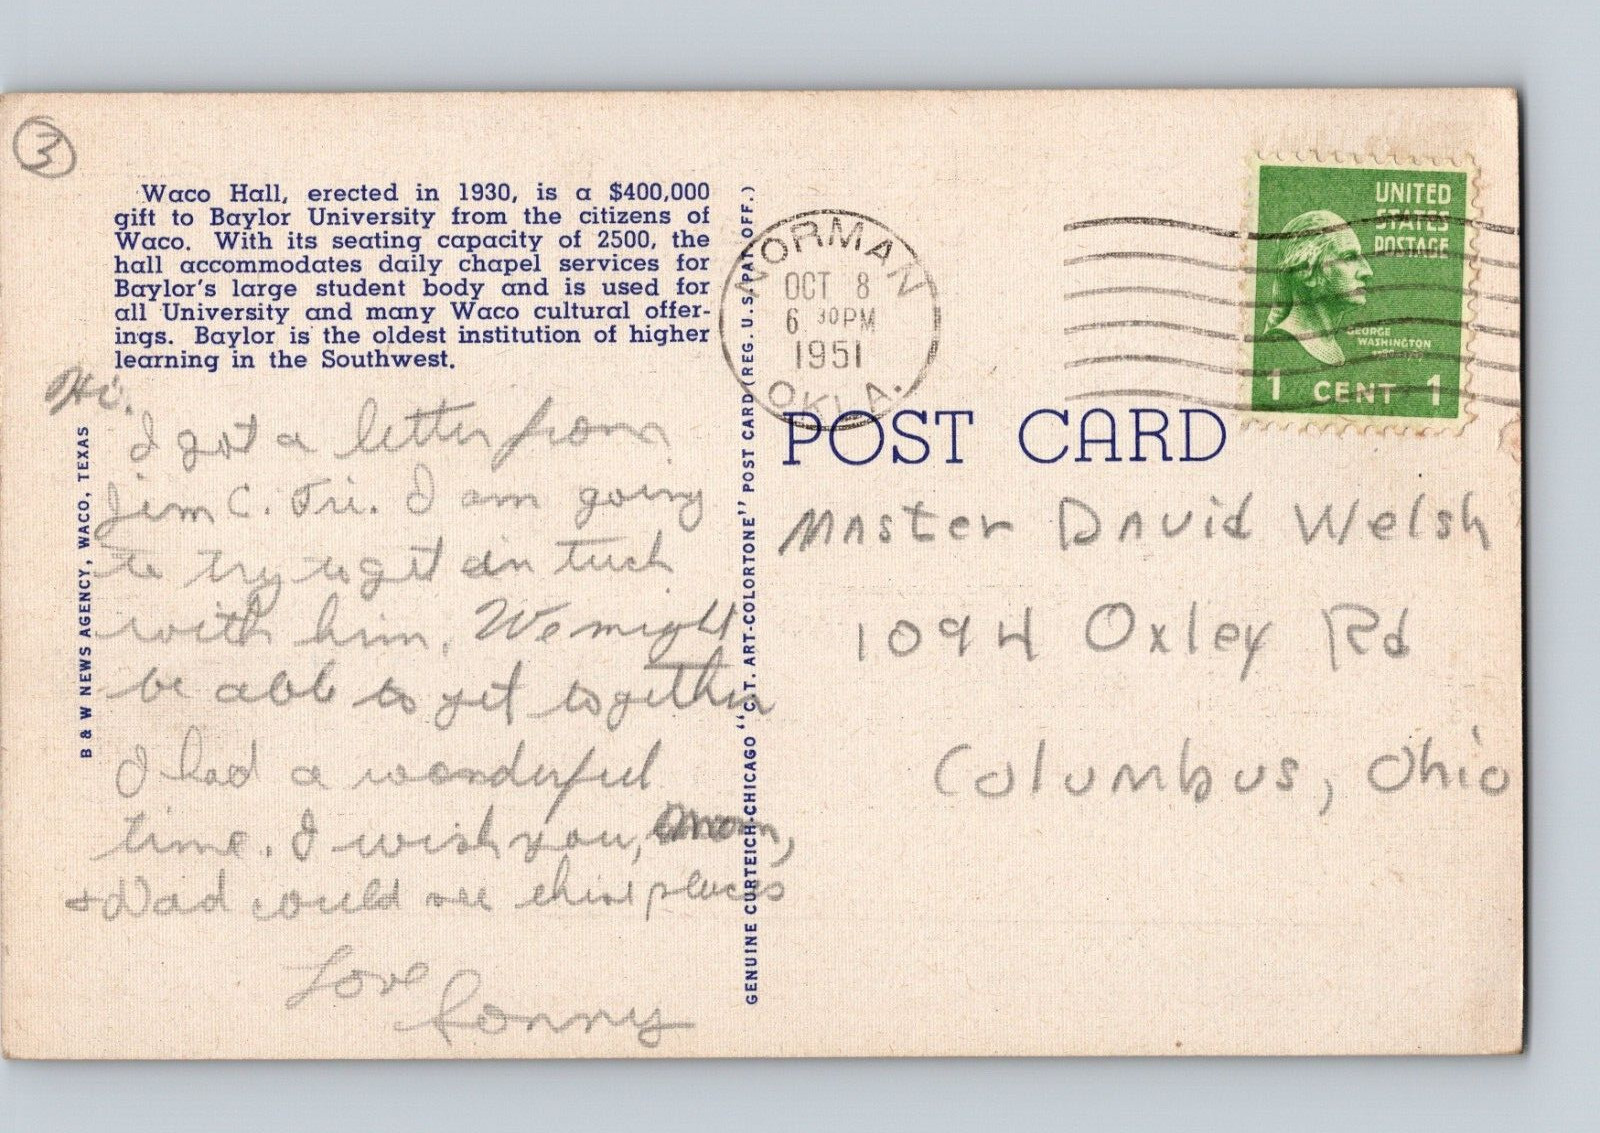 3
Waco Hall, erected in 1930, is a $400,000
gift to Baylor University from the citizens of
Waco. With its seating capacity of 2500, the
hall accommodates daily chapel services for
Baylor's large student body and is used for
all University and many Waco cultural offer-
ings. Baylor is the oldest institution of higher
learning in the Southwest.
Hi.
I got a letter from
Jim C. Fri. I am going
to try to get in tuch
with him. We might
be able to get together
I had a wonderful
time. I wish you, Mom,
+ Dad could see these places
Love
B & W NEWS AGENCY, WACO, TEXAS
GENUINE CURTEICH-CHICAGO "C.T. ART-COLORTONE" POST CARD (REG. U.S. PAT. OFF.)
NORMAN
OCT 8
6 30 PM
1951
OKLA.
UNITED
STATES
POSTAGE
GEORGE
WASHINGTON
1 CENT 1
POST CARD
Master David Welsh
1094 Oxley Rd
Columbus, Ohio